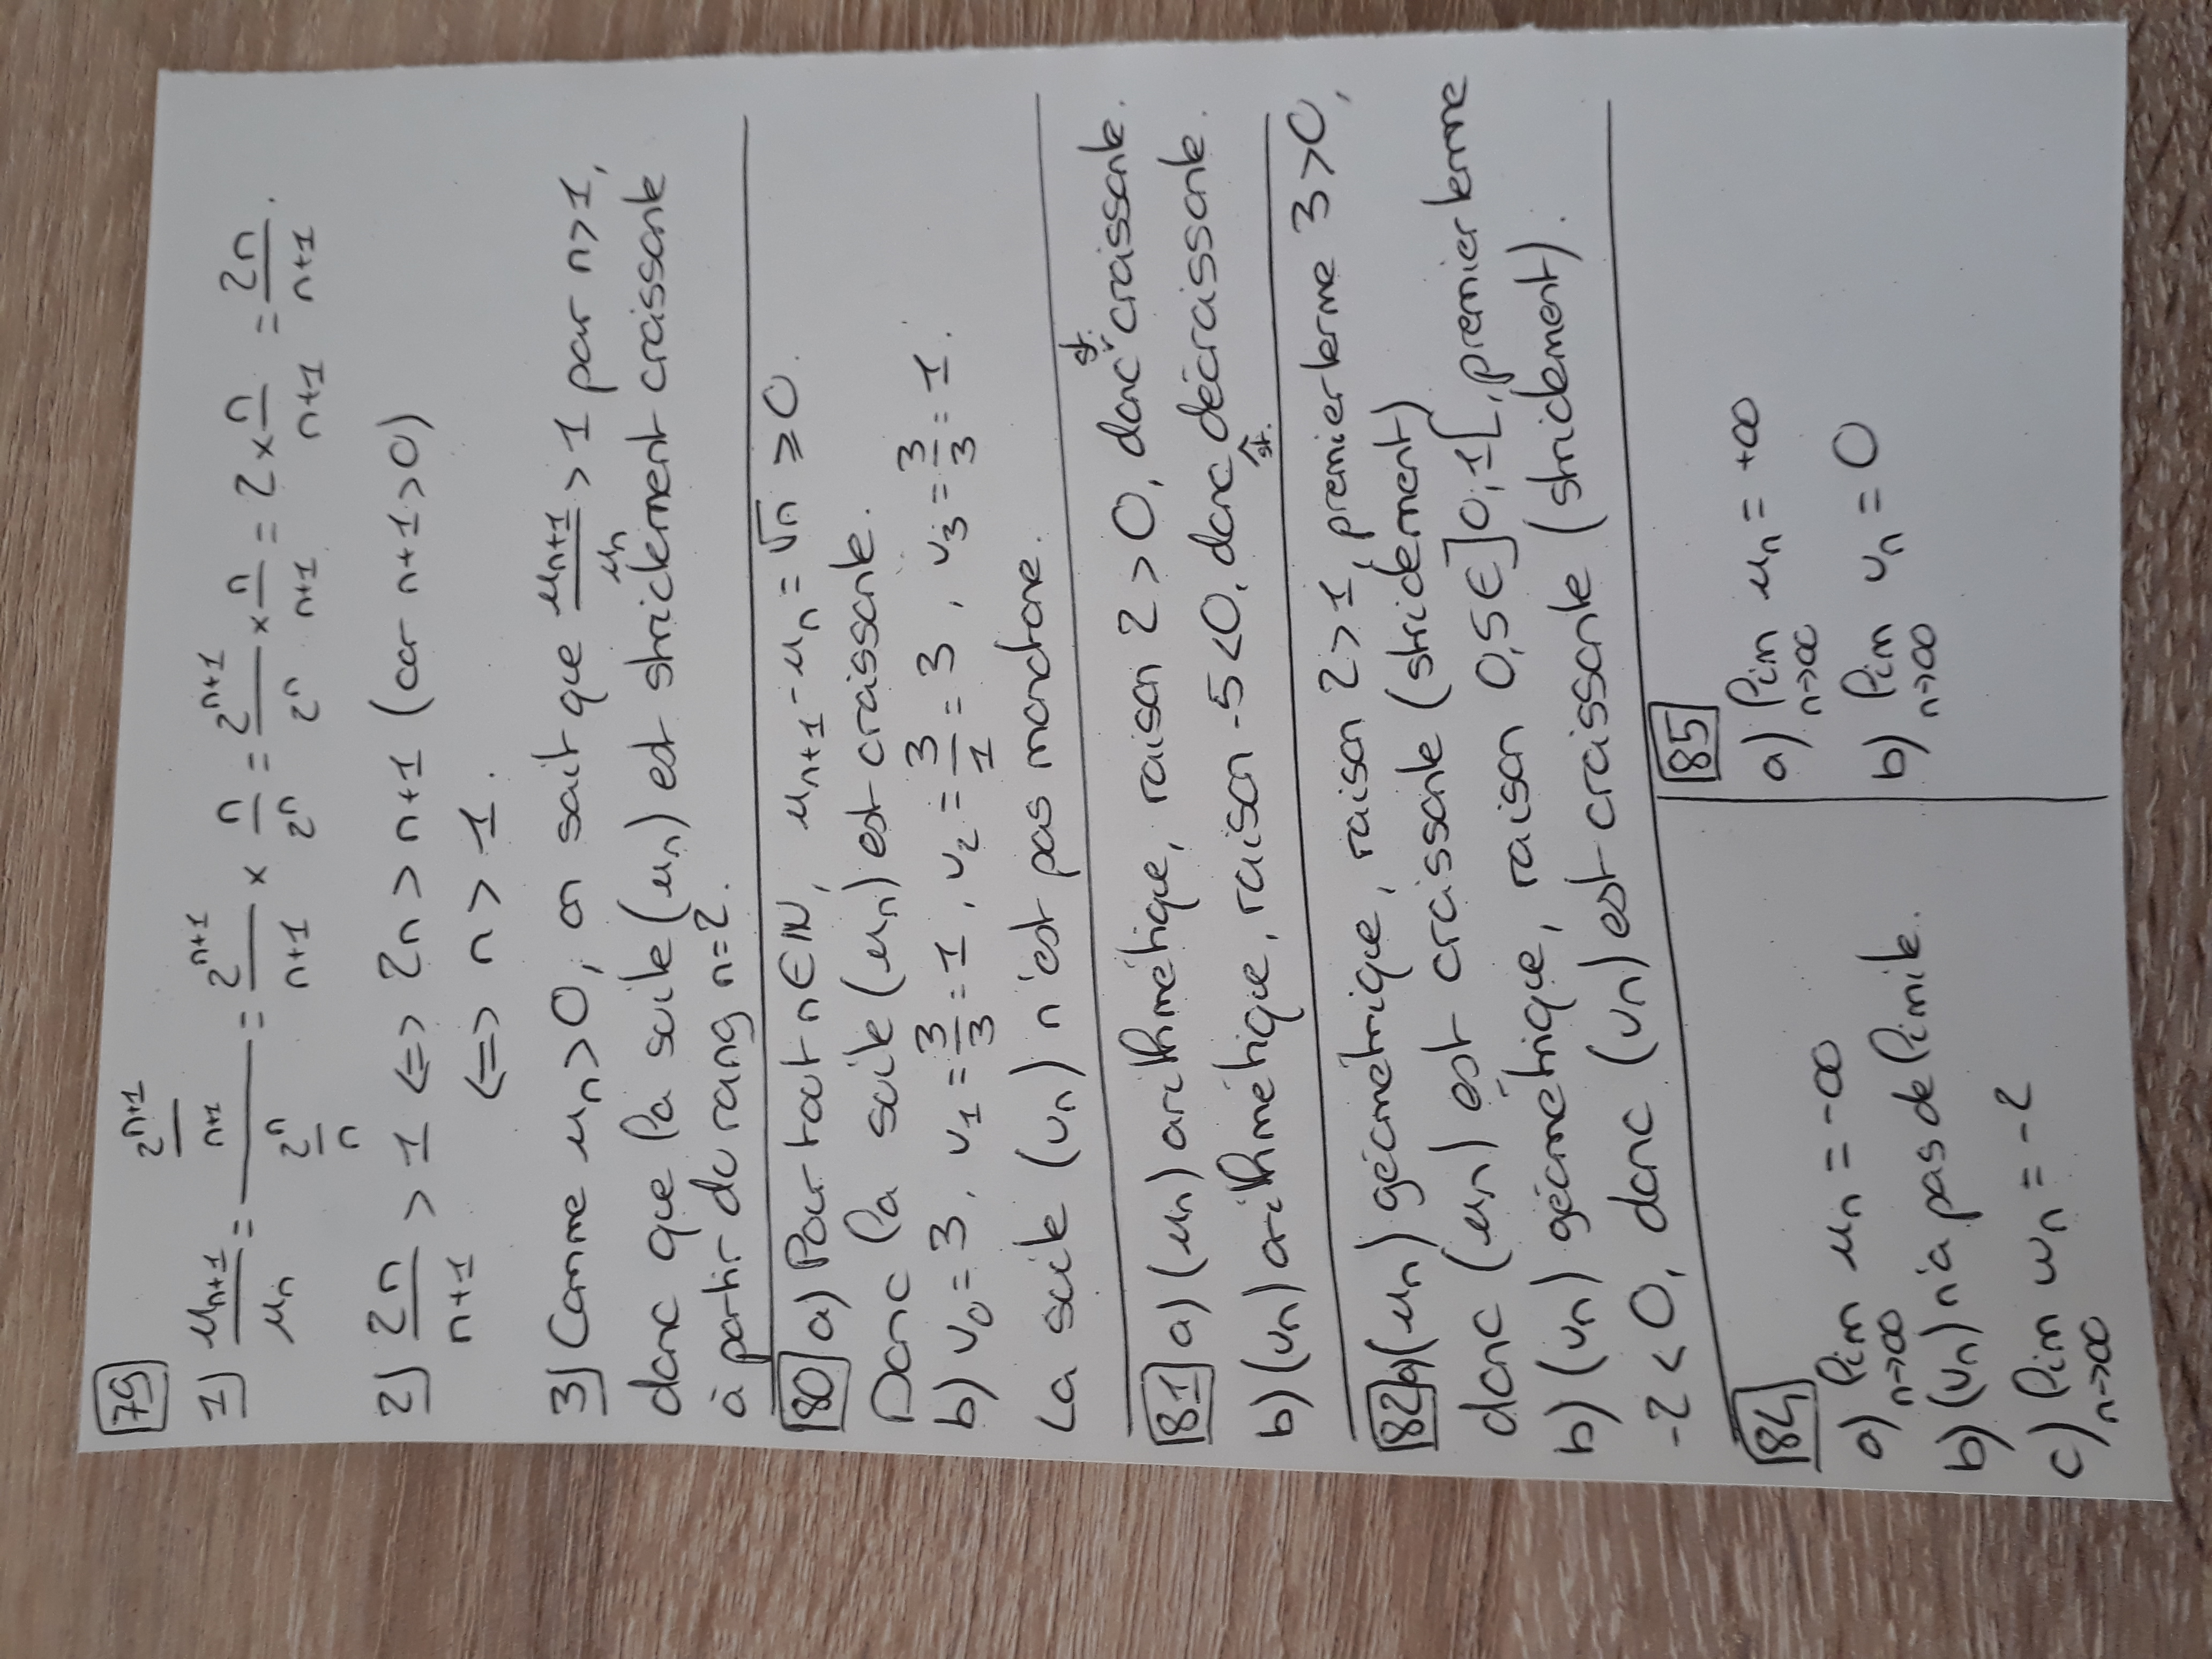 79
1) u_{n+1}/u_n = (2^{n+1}/(n+1))/(2^n/n) = 2^{n+1}/(n+1) × n/2^n = 2^{n+1}/2^n × n/(n+1) = 2 × n/(n+1) = 2n/(n+1).
2) 2n/(n+1) > 1 <=> 2n > n+1 (car n+1>0)
<=> n > 1.
3) Comme u_n>0, on sait que u_{n+1}/u_n > 1 par n>1,
donc que la suite (u_n) est strictement croissante
à partir du rang n=2.
80 a) Pour tout n∈ℕ, u_{n+1} - u_n = √n ⩾ 0.
Donc la suite (u_n) est croissante.
b) v_0 = 3, v_1 = 3/3 = 1, v_2 = 3/1 = 3, v_3 = 3/3 = 1.
La suite (v_n) n'est pas monotone.
81 a) (u_n) arithmétique, raison 2 > 0, donc st. croissante.
b) (v_n) arithmétique, raison -5<0, donc st. décroissante.
82 a) (u_n) géométrique, raison 2>1, premier terme 3>0,
donc (u_n) est croissante (strictement)
b) (v_n) géométrique, raison 0,5∈]0;1[, premier terme
-2<0, donc (v_n) est croissante (strictement).
84
a) lim_{n→∞} u_n = -∞
b) (v_n) n'a pas de limite.
c) lim_{n→∞} w_n = -2
85
a) lim_{n→∞} u_n = +∞
b) lim_{n→∞} v_n = 0